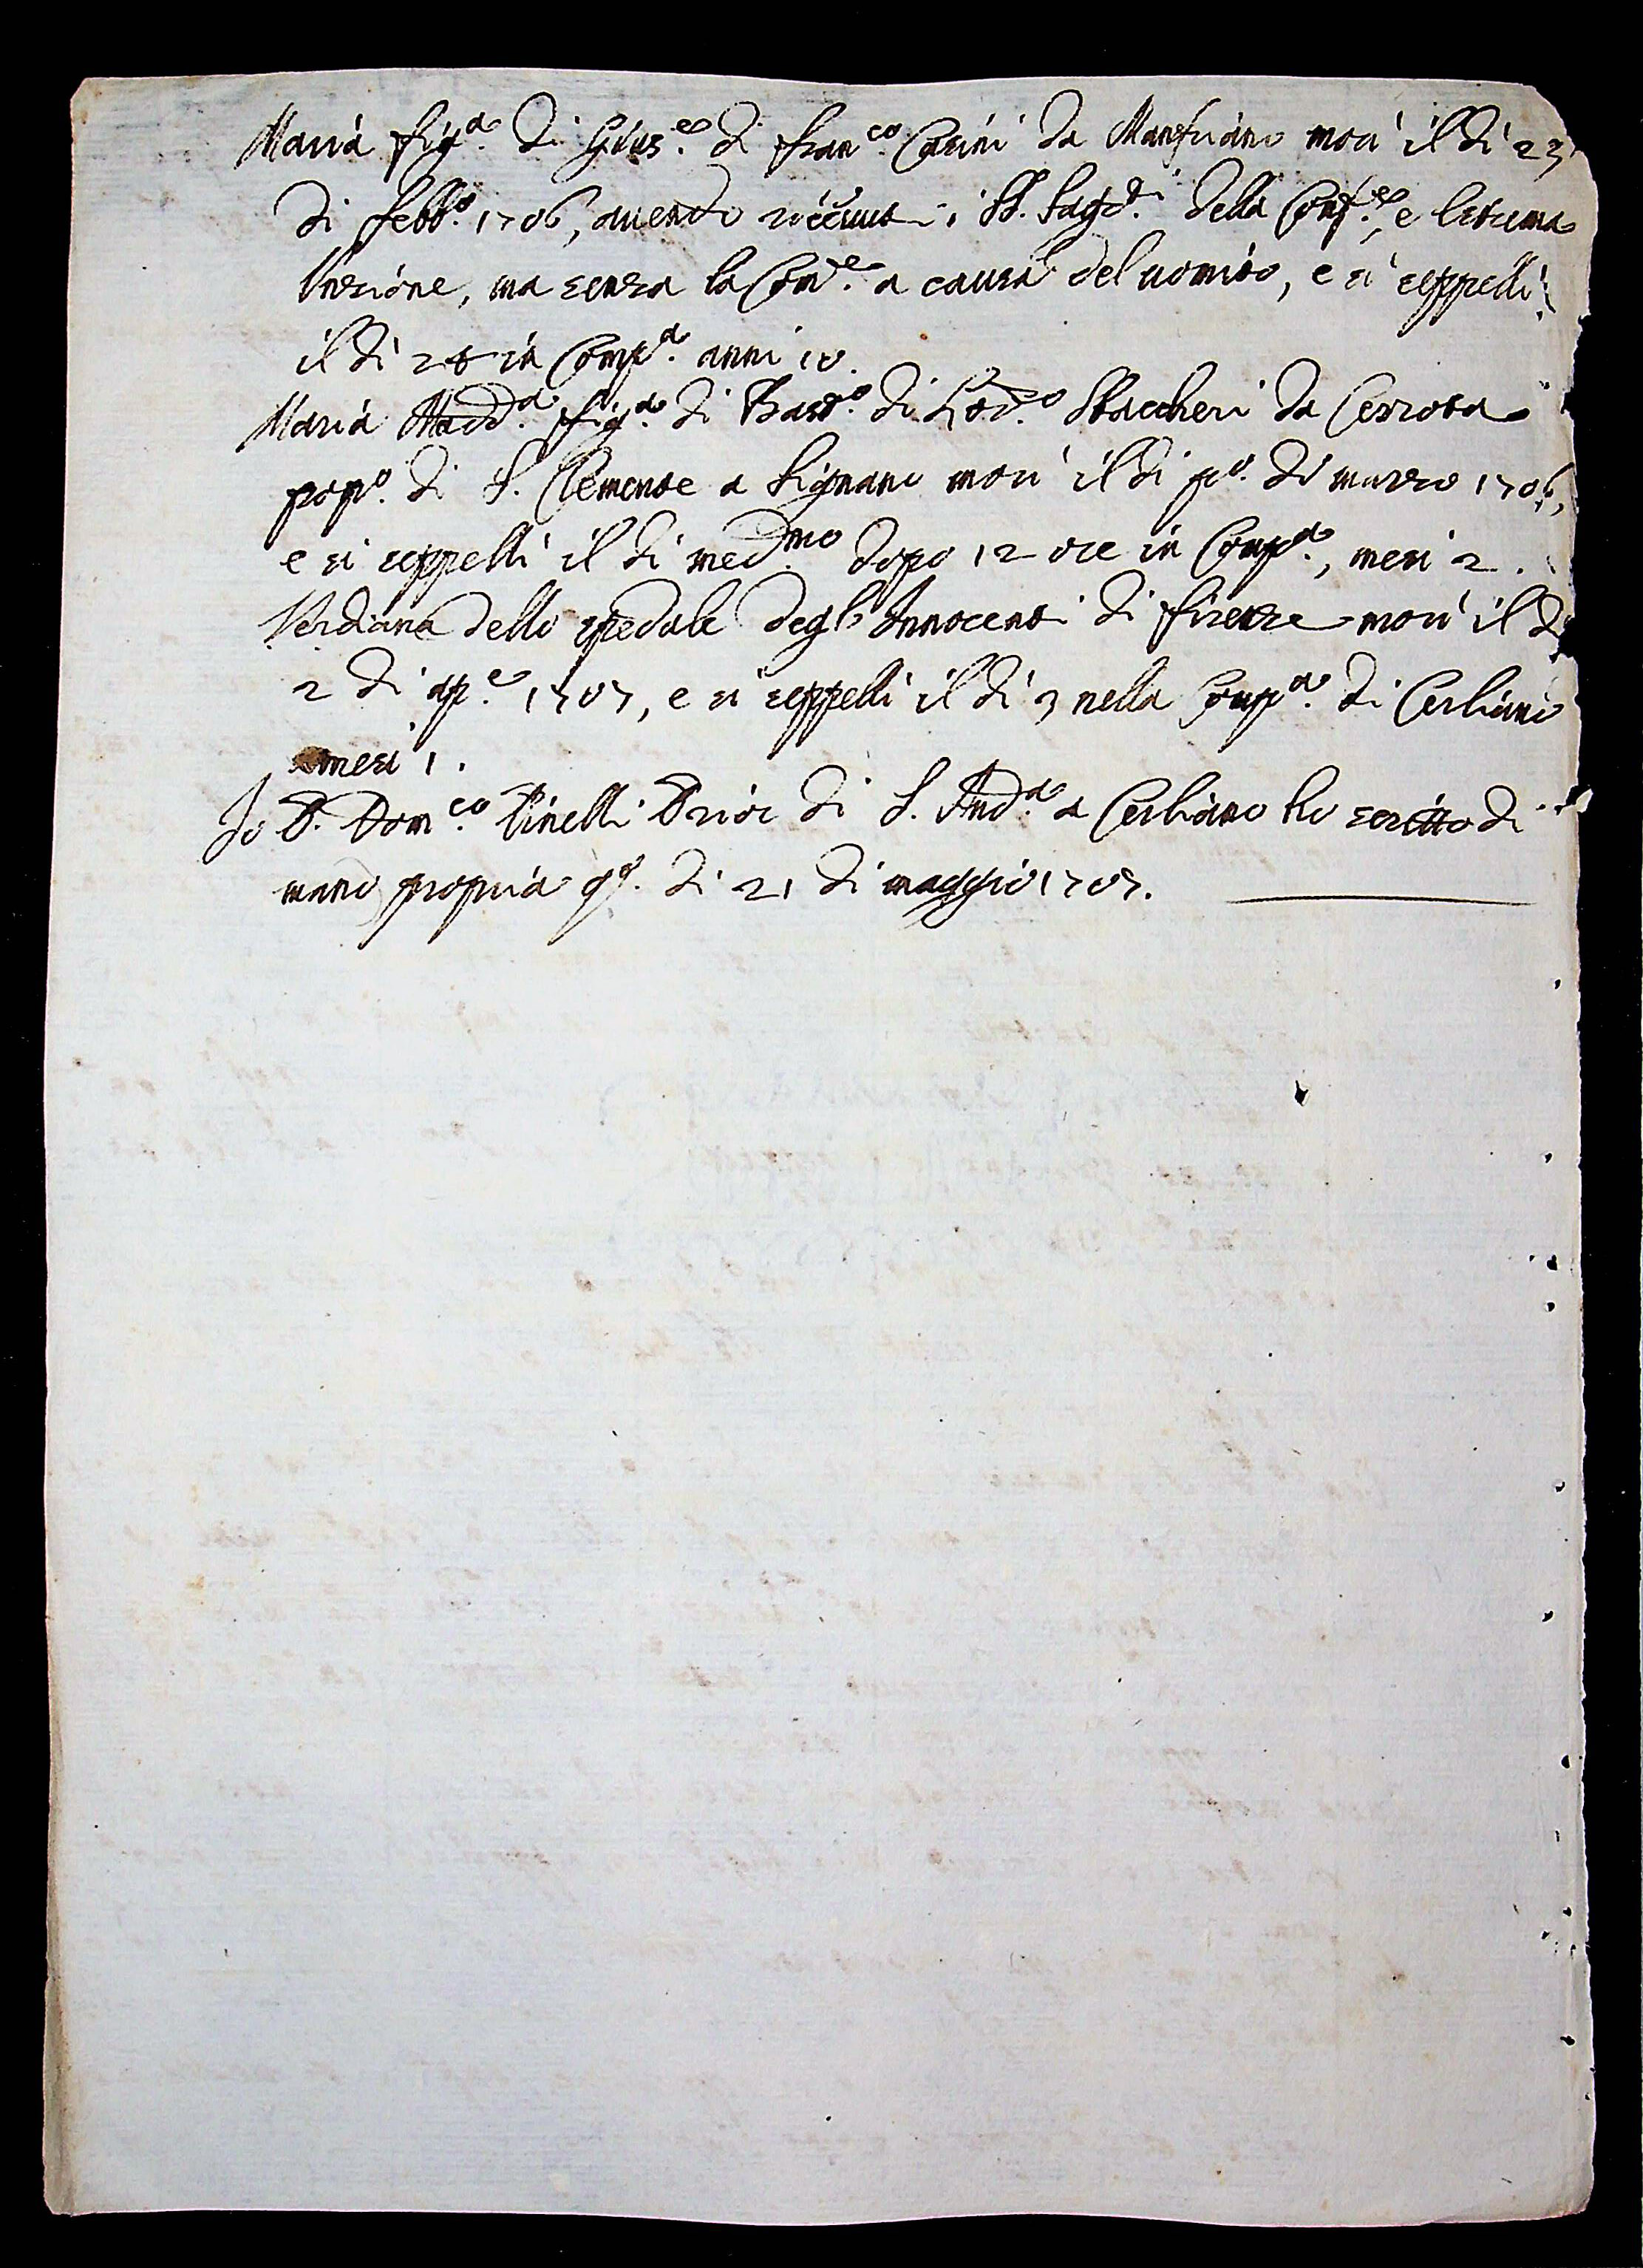 Maria fig.a di Gius.e di Fran.co Casini da Manfriano morì il dì 23
di febb.o 1706, avendo riceuuti i SS. Sag.ti della Conf.e, e lestrema
Unzione, ma senza la Com.e a causa del uomito, e si seppellì
il dì 26 in Comp.a anni 10.
Maria Madd.a fig.a di Bart.o di Lod.o Staccheri da Cerrota
pop.o di S. Clemente a Signano morì il dì p.o di marzo 1706,
e si seppellì il dì med.mo dopo 12 ore in Comp.a, mesi 2.
Verdiana dello spedale degl'Innocenti di firenze morì il dì
2 di ap.e 1707, e si seppellì il dì 3 nella Comp.a di Cerliano
mesi 1.
Io P. Dom.co Vinelli Prior di S. And.a a Cerliano ho scritto di
mano propria q.o dì 21 di maggio 1707.